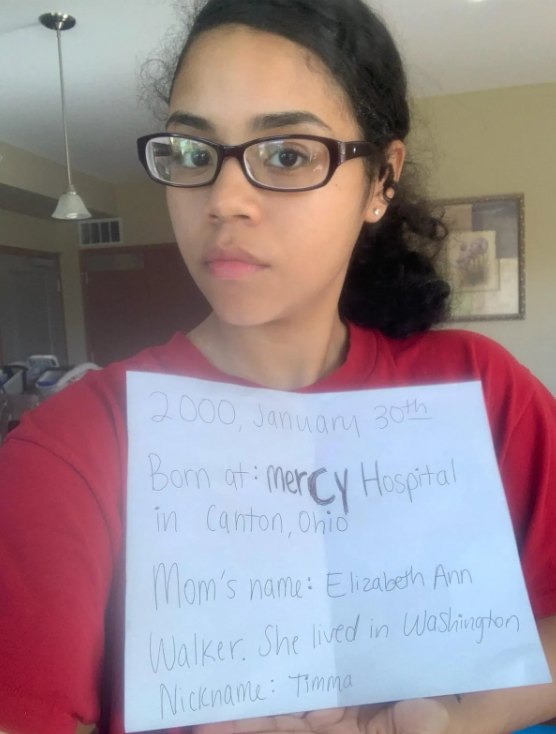 2000, January 30th
Born at: mercy Hospital
in Canton, Ohio
Mom's name: Elizabeth Ann
Walker. She lived in Washington
Nickname: Timma